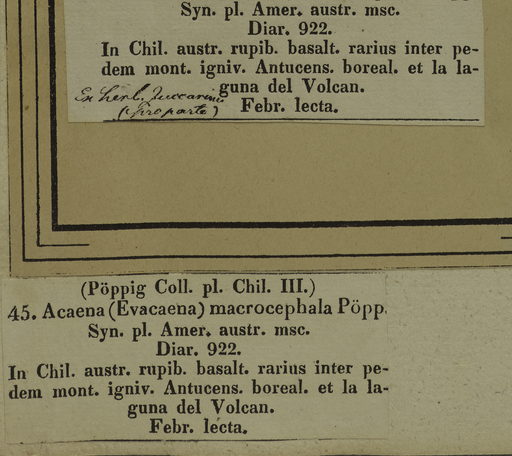 Syn. pl. Amer. austr. msc.
Diar. 922.
In Chil. austr. rupib. basalt. rarius inter pe-
dem mont. igniv. Antucens. boreal. et la la-
guna del Volcan.
Ex herb. Zuccarini
(pro parte)
Febr. lecta.
(Pöppig Coll. pl. Chil. III.)
45. Acaena (Evacaena) macrocephala Pöpp.
Syn. pl. Amer. austr. msc.
Diar. 922.
In Chil. austr. rupib. basalt. rarius inter pe-
dem mont. igniv. Antucens. boreal. et la la-
guna del Volcan.
Febr. lecta.